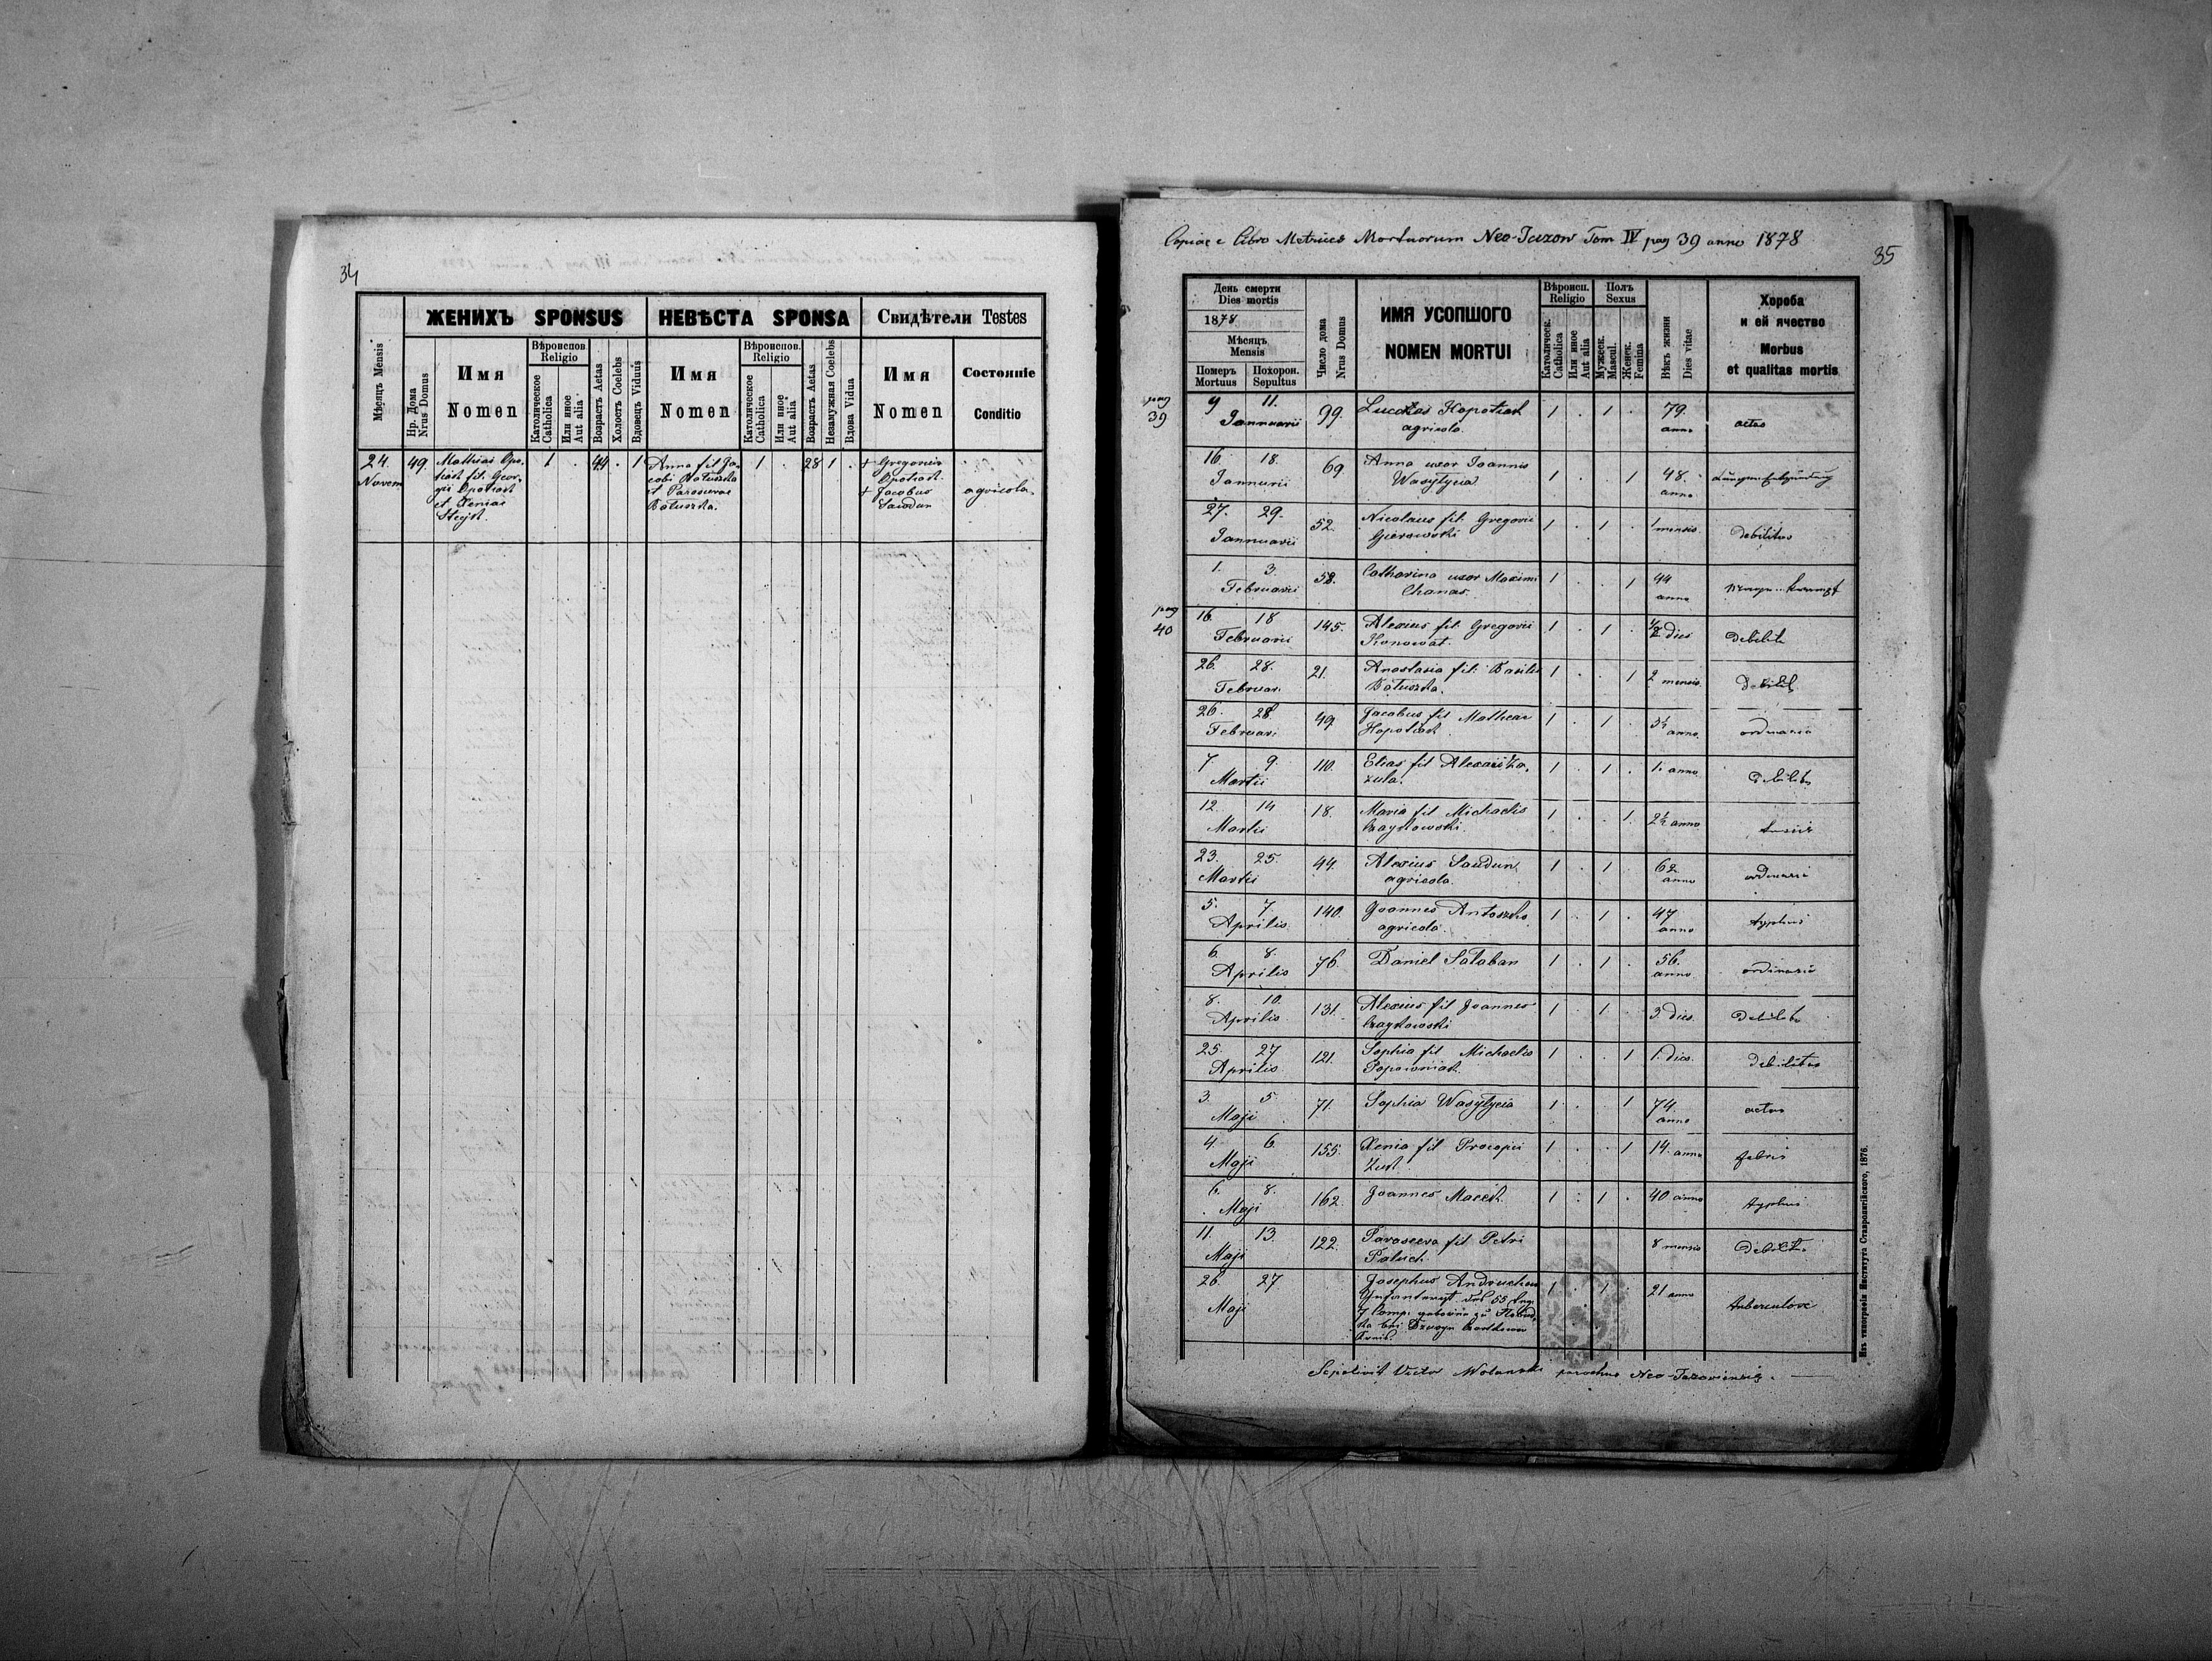 34
ЖЕНИХЪ SPONSUS
НЕВѢСТА SPONSA
Свидѣтели Testes
Мѣсяцъ Mensis
Нр. Дома
Nrus Domus
Имя
Nomen
Вѣроиспов.
Religio
Католическое
Catholica
Или иное
Aut alia
Возрастъ Aetas
Холостъ Coelebs
Вдовецъ Viduus
Имя
Nomen
Вѣроиспов.
Religio
Католическое
Catholica
Или иное
Aut alia
Возрастъ Aetas
Незамужная Coelebs
Вдова Vidua
Имя
Nomen
Состояніе
Conditio
24. 49. Mathias Opo- 1 . 44 . 1 Anna fil Ja- 1 . 28 1 . + Gregorius
Novem tiak fil. Geor- cobi Batuszka Opotiak
gii Opotiak et Parascevae + Jacobus agricola
et Xeniae Batuszka. Saiodun
Stojk.
Copiae e Libro Metrices Mortuorum Neo-Jazow Tom IV pag 39 anno 1878
35
День смерти
Dies mortis
1878
Мѣсяцъ
Mensis
Померъ
Mortuus
Похорон.
Sepultus
Число дома
Nrus Domus
ИМЯ УСОПШОГО
NOMEN MORTUI
Вѣроисп.
Religio
Католическ.
Catholica
Или иное
Aut alia
Полъ
Sexus
Мужеск.
Mascul.
Женск.
Femina
Вѣкъ жизни
Dies vitae
Хороба
и ей ячество
Morbus
et qualitas mortis
pag
39
9 11. 99. Lucas Hopotiak 1 . 1 . 79.
Jannuarii agricola. anno aetas
16. 18. 69 Anna uxor Joannis 1 . . 1 48.
Jannuarii Wasylycia anno
27. 29. 52. Nicolaus fil. Gregorii 1 . 1 . 1 mensis
Jannuarii Gierowski debilitas
1. 3. 58. Catharina uxor Maximi 1 . . 1 44
Februarii Chanas. anno
pag
40
16. 18 145. Alexius fil. Gregorii 1 . 1 . 1/2 dies
Februarii Konowat. debilit
26. 28. 21. Anastasia fil. Basilii 1 . . 1 2 mensis
Februar. Batuszka. debilit
26. 28 49. Jacobus fil Matheae 1 . 1 . 3½
Februari Hopotiak. anno. ordinaria
7 9 110. Elias fil Alexii Za- 1 . 1 . 1. anno
Martii zula. debilitas
12. 14 18. Maria fil Michaelis 1 . . 1. 2½ anno
Martii Czaykowski. tussis
23. 25. 44. Alexius Saudun 1 . 1 . 62
Martii agricola. anno ordinaria
5. 7. 140. Joannes Antoszko 1 . 1 . 47
Aprilis agricola. anno typhus
6. 8. 76. Daniel Sataban 1 . 1 . 56.
Aprilis anno ordinaria
8. 10. 131. Alexius fil Joannes 1 . 1 . 3. dies
Aprilis Czaykowski debilitas
25. 27 121. Sophia fil Michaelis 1 . . 1 1. dies.
Aprilis Popowniak. debilitas
3. 5. 71. Sophia Wasylycia 1 . 1 74.
Maji anno aetas
4. 6. 155. Xenia fil Procopii 1 . . 1 14. anno
Maji Zuk. febris
6. 8. 162. Joannes Macek 1 . 1 . 40 anno
Maji typhus
11. 13. 122. Parasceva fil Petri 8 mensis
Maji Paluch debilit.
26. 27 Josephus Andruchow 1 . 1 . 21 anno
Maji tuberculose
Sepelivit Victor Wolanski parochus Neo-Jazoviensis.
Изъ типографіи Института Ставропигійского, 1876.